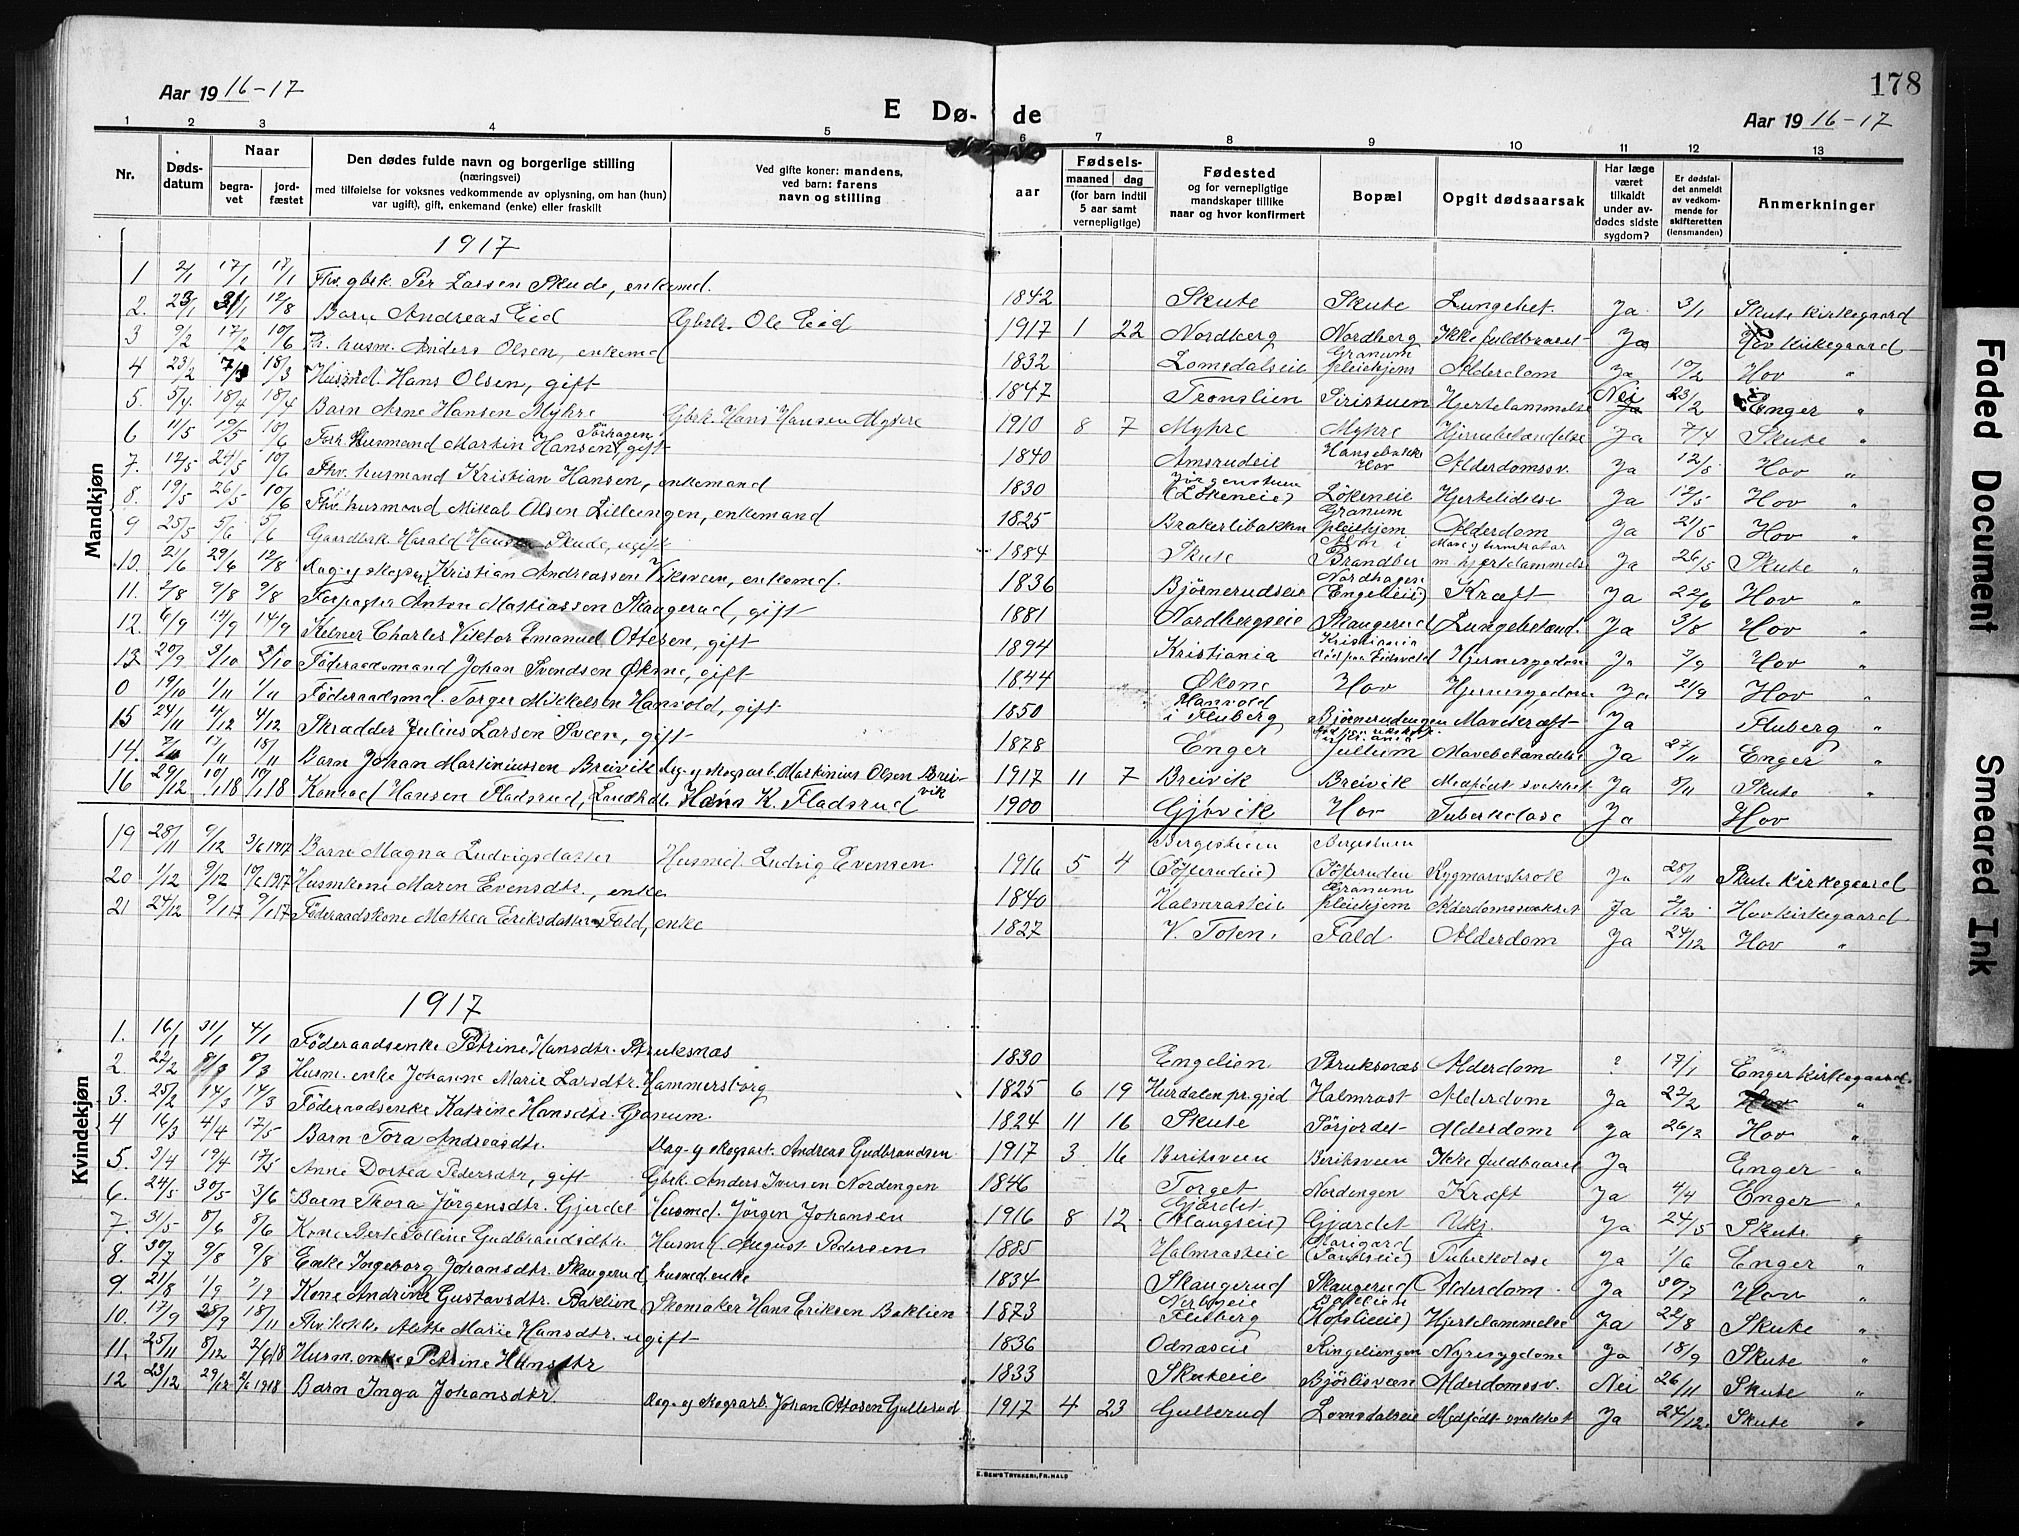 178
Aar 1916-17
E Dø-
de
Aar 1916-17
1 2 3 4 5 6 7 8 9 10 11 12 13
Nr.
Døds-datum
Naar
begra-vet
jord-fæstet
Den dødes fulde navn og borgerlige stilling
(næringsvei)
med tilføielse for voksnes vedkommende av oplysning, om han (hun)
var ugift), gift, enkemand (enke) eller fraskilt
Ved gifte koner: mandens,
ved barn: farens
navn og stilling
aar
Fødsels-
maaned dag
(for barn indtil
5 aar samt
vernepligtige)
Fødested
og for vernepligtige
mandskaper tillike
naar og hvor konfirmert
Bopæl
Opgit dødsaarsak
Har læge
været
tilkaldt
under av-
dødes sidste
sygdom?
Er dødsfal-
det anmeldt
av vedkom-
mende for
skifteretten
(lensmanden)
Anmerkninger
Mandkjøn
1917
1 2/1 17/1 17/1 Fhv. gbrk. Per Larsen Skude, enkemd. 1842 Skute Skute Lungebet. Ja 3/1 Skute kirkegaard
2. 23/1 31/1 12/8 Barn Andreas Eid Gbrk. Ole Eid 1917 1 22 Nordberg Nordberg Ikke fuldbaaret Ja Hov kirkegaard
3 9/2 17/2 10/6 Fh. husm. Anders Olsen, enkemd 1832 Lomsdalseie Granum pleiehjem Alderdom Ja 10/2 Hov "
4 23/2 7/3 18/3 Husmd. Hans Olsen, gift 1847 Tronslien Siristuen Hjertelammelse Nei 23/2 Enger "
5. 5/4 18/4 18/4 Barn Arne Hansen Myhre Gbrk. Hans Hansen Myhre 1910 8 7 Myhre Myhre Hjernebetændelse Ja 7/4 Skute "
6 11/5 19/5 10/6 Forh. Husmand Martin Hansen, gift 1840 Amsrudeie Hansebakk. Hov Alderdomssv. Ja 12/5 Hov "
7. 12/5 24/5 10/6 Fhv. husmand Kristian Hansen, enkemand 1830 Jörgenstuen (Løkeneie) Løkeneie Hjertelidelse Ja 12/5 Hov "
8. 19/5 26/5 10/6 Fhv. husmand Mikal Olsen Lilleengen, enkemand 1825 Brakerlibakken Granum pleiehjem Alderdom Ja 21/5 Hov "
9 25/5 5/6 5/6 Gaardbrk Harald Hansen Skude, ugift 1884 Skute Brandbu Mavegturmkatar m hjertelammelse Ja 26/5 Skute "
10. 21/6 29/6 12/8 Dag- og skogsarb. Kristian Andreassen Viksveen, enkemd. 1836 Björnerudseie Nordhagen (Engelieie) Kræft Ja 22/6 Hov "
11. 2/8 9/8 9/8 Forpagter Anton Mathiassen Skaugerud, gift 1881 Nordbergseie Skaugerud Lungebetænd. Ja 3/8 Hov "
12. 6/9 14/9 14/9 Kelner Charles Viktor Emanuel Ottesen, gift 1894 Kristiania Kristiania död paa Eidsvold Hjernesygdom Ja 7/9 Hov "
13 20/9 3/10 3/10 Föderaadsmand Johan Svendsen Øksne, gift 1844 Øksne Hov Hjernesygdom Ja 21/9 Hov "
0 19/10 1/11 1/11 Föderaadsmd. Torger Mikkelsen Hanvold, gift 1850 Hanvold i Fluberg Björnerudengen Mavekræft Ja Fluberg "
15 24/11 4/12 4/12 Skrædder Julius Larsen Sveen, gift 1878 Enger Jultum Mavebetændelse Ja 27/11 Enger "
14. 17/11 18/11 Barn Johan Martiniussen Breivik Dag- og skogsarb. Martinius Olsen Breivik 1917 11 7 Breivik Breivik Medfödt svakhet Ja 8/11 Skute "
16 29/12 10/1 18 10/1 18 Konrad Hansen Fladsrud, Landh. Hans K. Fladsrud 1900 Gjövik Hov Tuberkulose Ja Hov
Kvindekjøn
19 28/11 9/12 3/6 1917 Barn Magna Ludvigsdatter Husmd. Ludvig Evensen 1916 5 4 Bergestuen (Töfterudeie) Bergestuen Rygmarvsbrok Ja 28/11 Skute kirkegaard
20 1/12 9/12 10/6 1917 Husmkone Maren Evensdtr., enke 1840 Halmrasteie Granum pleiehjem Alderdomssvakhet Ja 2/12 Hov kirkegaard
21 24/12 9/1 17 9/1 17 Föderaadskone Mathea Eriksdatter Fald, enke 1827 V. Toten. Fald Alderdom Ja 24/12 Hov "
1917
1. 16/1 31/1 4/1 Föderaadsenke Petrine Hansdtr. Struksnæs 1830 Engelien Struksnæs Alderdom ? 17/1 Enger kirkegaard
2. 22/2 8/3 8/3 Husm. enke Johanne Marie Larsdtr. Hammersborg 1825 6 19 Hurdalen pr.gjed Halmrast Alderdom Ja 22/2 Hov "
3. 25/2 14/3 14/3 Föderaadsenke Katrine Hansdtr. Granum. 1824 11 16 Skute Sörjordet Alderdom Ja 26/2 Hov "
4 16/3 4/4 17/5 Barn Tora Andreasdtr. Dag- og skogsarb. Andreas Gudbrandsen 1917 3 16 Beriksveen Beriksveen Ikke fuldbaaret Ja Enger "
5. 3/4 19/4 17/5 Anne Dortea Pedersdtr, gift Gbrk. Anders Iversen Nordengen 1846 Torget Nordengen Kræft Ja 4/4 Enger "
6. 24/5 30/5 3/6 Barn Thora Jörgensdtr. Gjerdet Husmd. Jörgen Johansen 1916 8 12 Gjærdet (Haugseie) Gjærdet Ukj. Ja 24/5 Skute "
7. 31/5 8/6 8/6 Kone Berte Polline Gudbrandsdtr. Husmd. August Pedersen 1885 Halmrasteie Marigard Tuberkolose Ja 1/6 Enger "
8. 30/7 9/8 9/8 Enke Ingeborg Johansdtr. Skaugerud, husmd.enke 1834 Skaugerud Skaugerud Alderdom Ja 30/7 Hov "
9. 21/8 1/9 1/9 Kone Andrine Gustavsdtr. Baklien Skomaker Hans Eriksen Baklien 1873 Fluberg Baklien (Hofslieie) Hjertelammelse Ja 22/8 Skute "
10. 17/9 28/9 18/11 Alette Marie Hansdtr. ugift 1836 Odnæseie Ringeliengen Nyresygdom Ja 18/9 Skute "
11. 25/11 8/12 2/6 18 Husm. enke Petrine Hansdtr 1833 Skuteeie Björlisveen Alderdomssv. Nei 26/11 Skute "
12 23/12 29/12 2/6 1918 Barn Inga Johansdtr. Dag- og skogsarb. Johan Ottosen Gullerud 1917 4 23 Gullerud Lomsdalseie Medfödt svakhet Ja 24/12. Skute "
E. SEM'S TRYKKERI, FR.HALD
Faded Document
Smeared Ink